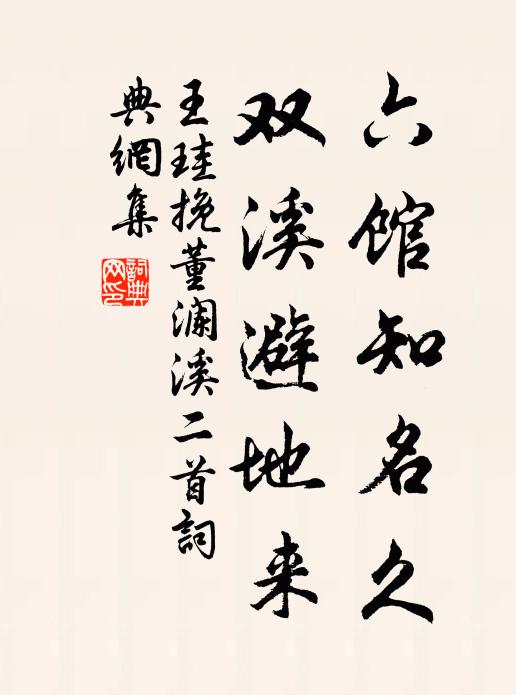 六馆知名久
双溪避地来
王珪挽董澜溪二首詞
典網集
詞典
网印